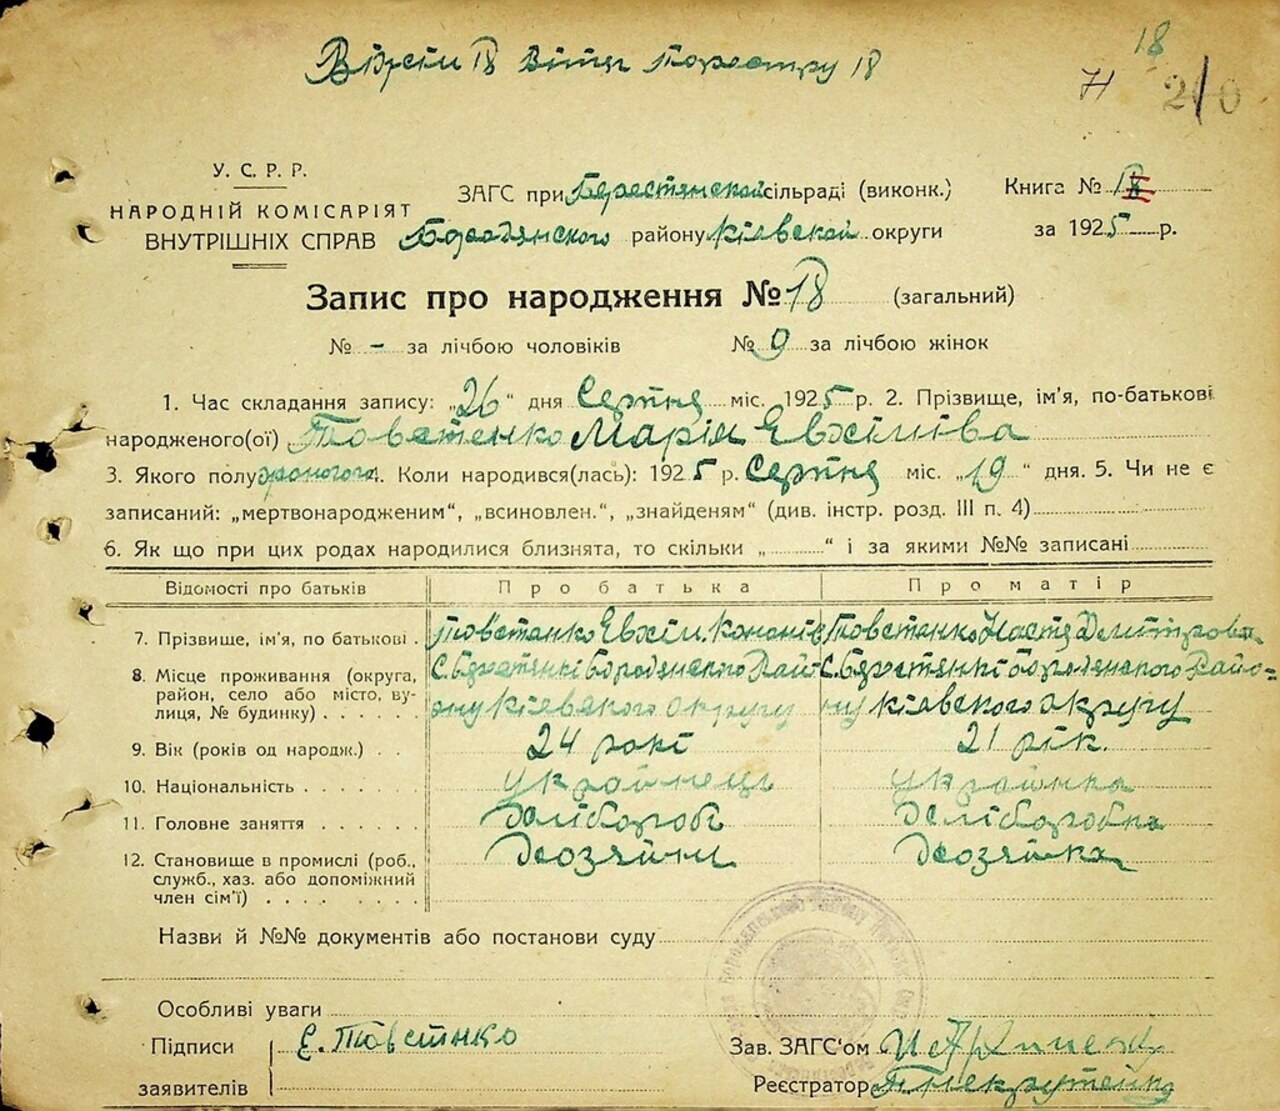 18
18
210
У. С. Р. Р.
НАРОДНІЙ КОМІСАРІЯТ
ВНУТРІШНІХ СПРАВ
ЗАГС при Берестянской сільраді (виконк.)
Бородянского району Кіевской округи
Книга №
за 1925 р.
Запис про народження № 18 (загальний)
№ - за лічбою чоловіків № 9 за лічбою жінок
1. Час складання запису: „26“ дня Серпня міс. 1925 р. 2. Прізвище, ім'я, по-батькові
народженого(ої) Товстенко Марія Евхіміва
3. Якого полу 4. Коли народився(лась): 1925 р. Серпня міс. „19“ дня. 5. Чи не є
записаний: „мертвонародженим“, „всиновлен.“, „знайденям“ (див. інстр. розд. III п. 4)
6. Як що при цих родах народилися близнята, то скільки „ “ і за якими №№ записані
Відомості про батьків Про батька Про матір
7. Прізвище, ім'я, по батькові . Товстенко Евхім Товстенко Настя
8. Місце проживання (округа, район, село або місто, вулиця, № будинку) . . . . . . С. Берестянкі Бородянского Району Кіевского округу С. Берестянкі Бородянского Району Кіевского округу
9. Вік (років од народж.) . . 24 рокі 21 рік.
10. Національність . . . . . . . Українець Українка
11. Головне заняття . . . . . . Хліборобка
12. Становище в промислі (роб., служб., хаз. або допоміжний член сім'ї) . . . . . . Хозяйка
Назви й №№ документів або постанови суду
Особливі уваги
Підписи Е. Товстенко
заявителів
Зав. ЗАГС‘ом
Реєстратор